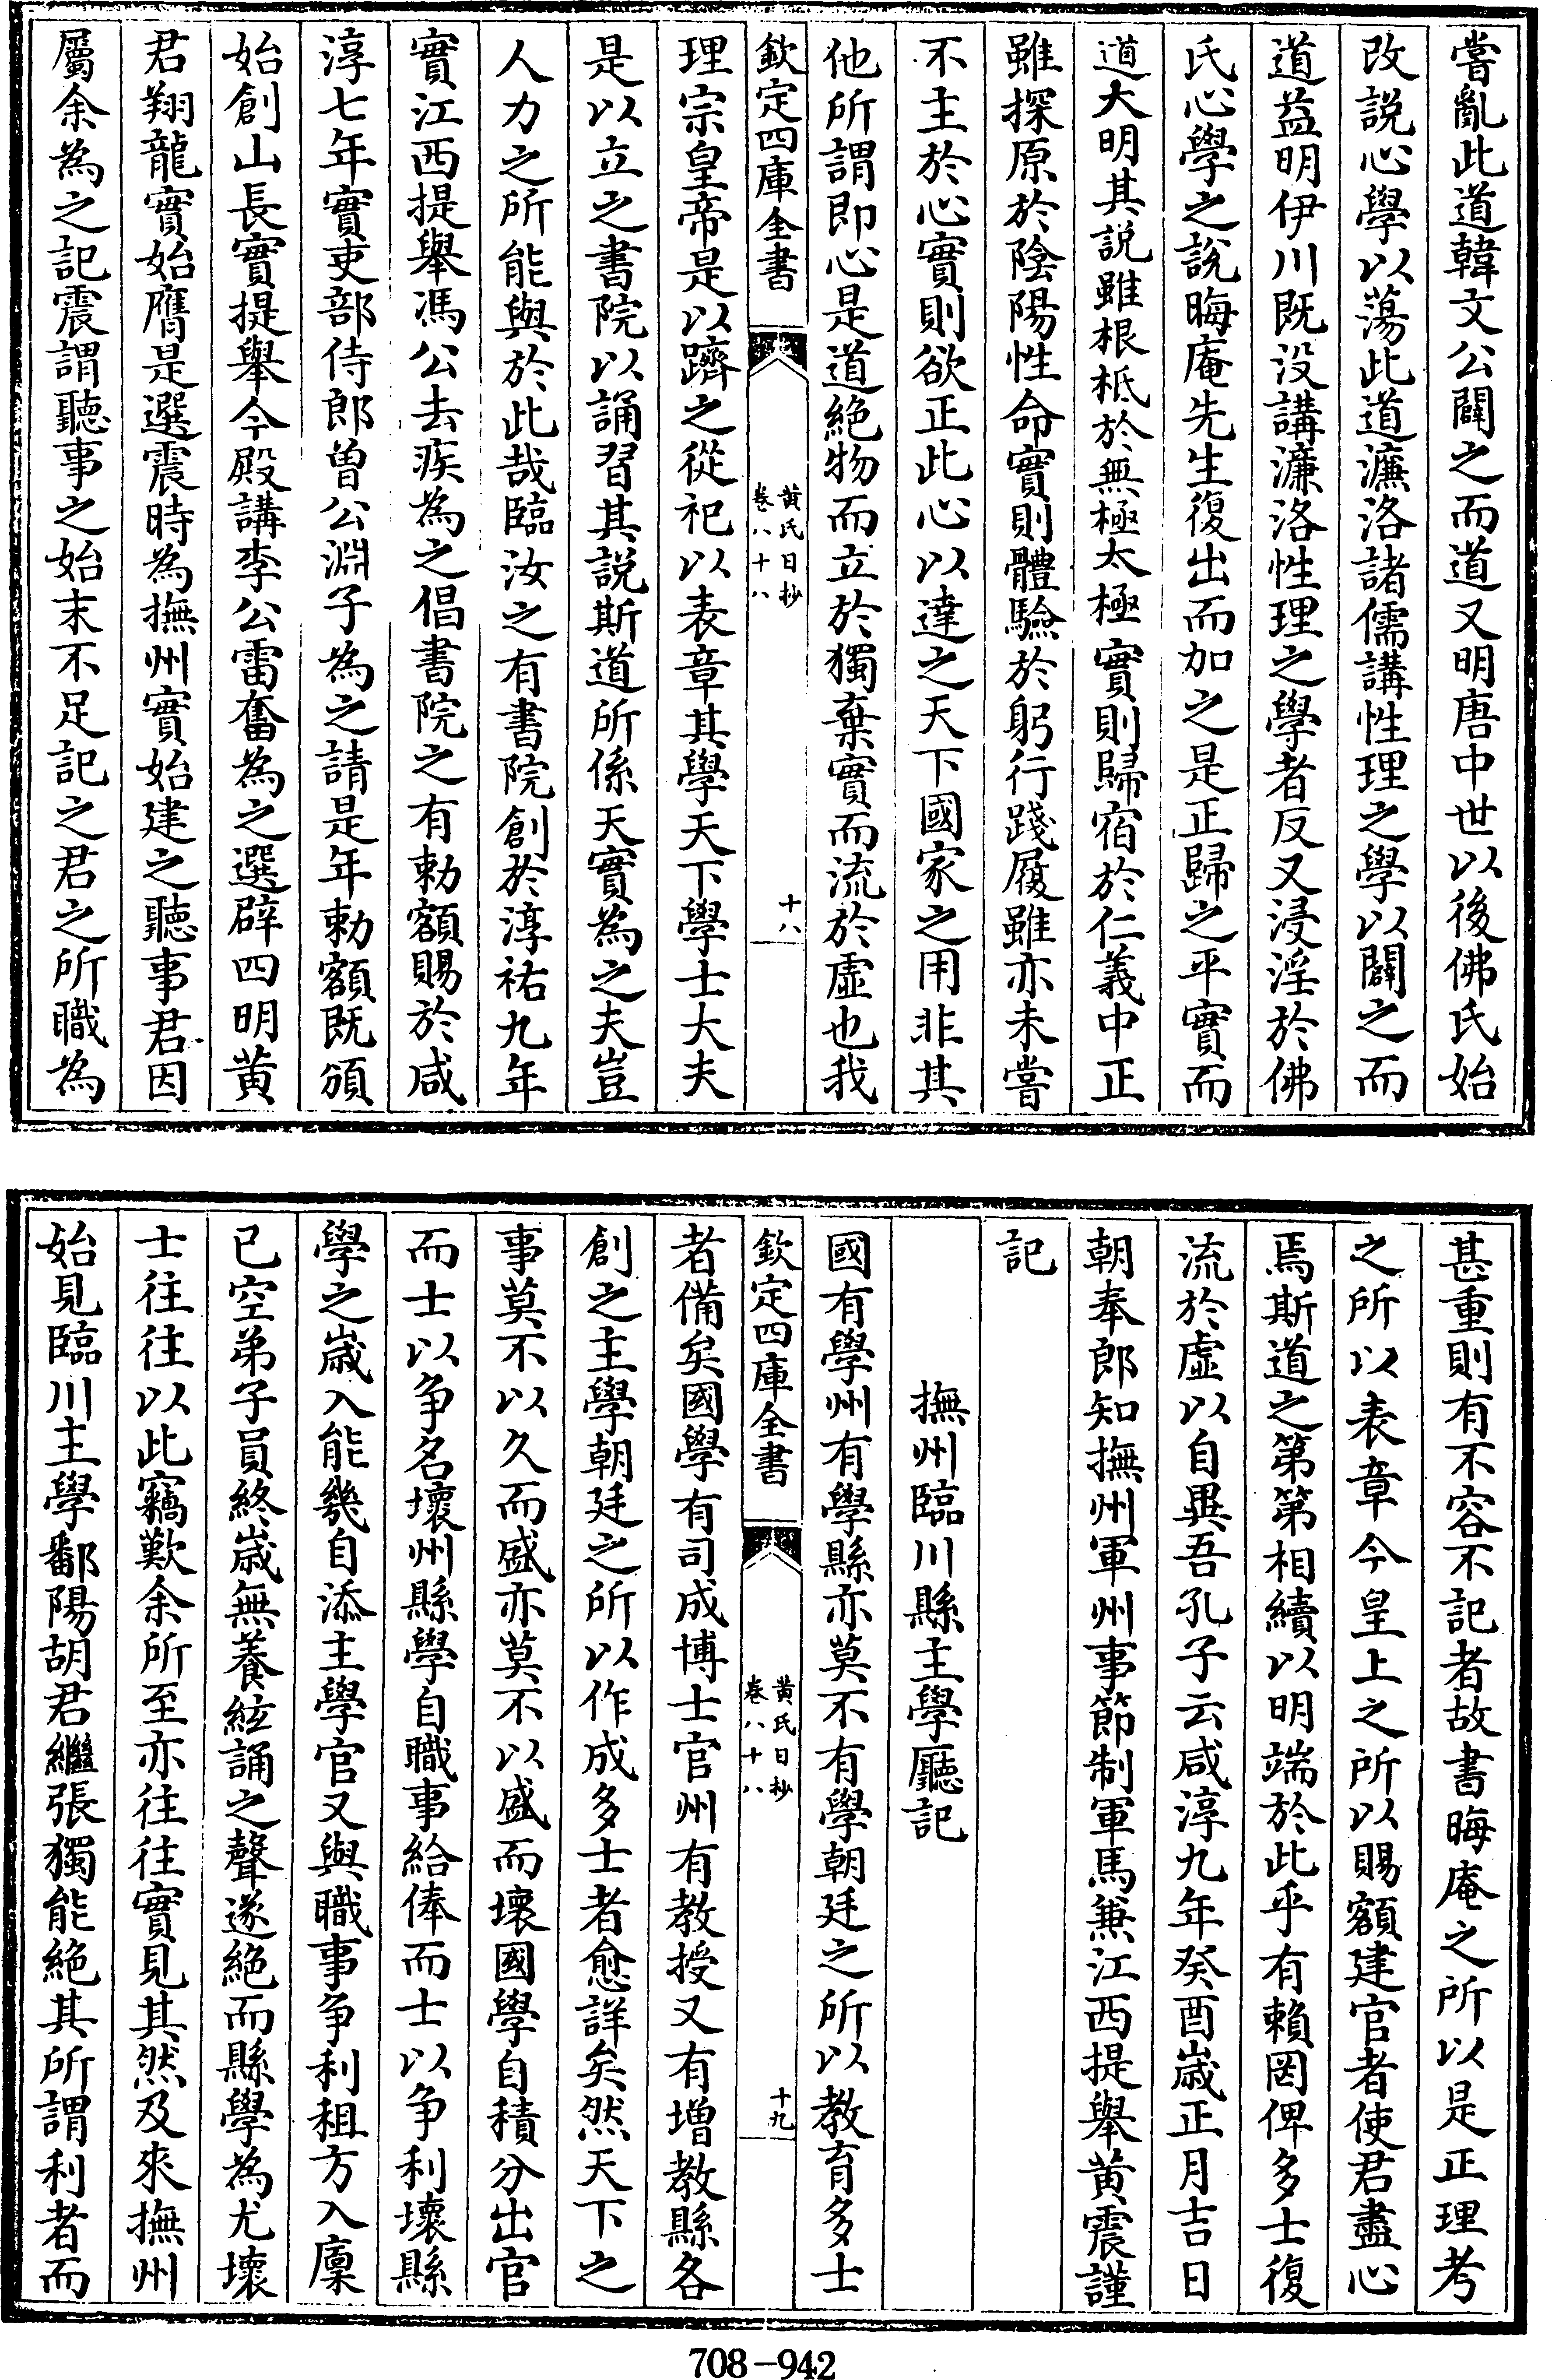 嘗亂此道韓文公闢之而道又明唐中世以後佛氏始
改説心學以蕩此道濂洛諸儒講性理之學以闢之而
道益明伊川既没講濂洛性理之學者反又浸淫於佛
氏心學之説晦庵先生復出而加之是正歸之平實而
道大明其説雖根柢於無極太極實則歸宿於仁義中正
雖探原於陰陽性命實則體驗於躬行踐履雖亦未嘗
不主於心實則欲正此心以達之天下國家之用非其
他所謂即心是道絶物而立於獨棄實而流於虛也我
欽定四庫全書
黄氏日抄
卷八十八
十八
理宗皇帝是以躋之從祀以表章其學天下學士大夫
是以立之書院以誦習其説斯道所係天實為之夫豈
人力之所能與於此哉臨汝之有書院創於淳祐九年
實江西提舉馮公去疾為之倡書院之有勅額賜於咸
淳七年實吏部侍郎曽公淵子為之請是年勅額既頒
始創山長實提舉今殿講李公雷奮為之選辟四明黄
君翔龍實始膺是選震時為撫州實始建之聽事君因
屬余為之記震謂聽事之始末不足記之君之所職為
甚重則有不容不記者故書晦庵之所以是正理考
之所以表章今皇上之所以賜額建官者使君盡心
焉斯道之第第相續以明端於此乎有賴罔俾多士復
流於虛以自異吾孔子云咸淳九年癸酉歲正月吉日
朝奉郎知撫州軍州事節制軍馬兼江西提舉黄震謹
記
撫州臨川縣主學廳記
國有學州有學縣亦莫不有學朝廷之所以教育多士
欽定四庫全書
黄氏日抄
卷八十八
十九
者備矣國學有司成博士官州有教授又有增教縣各
創之主學朝廷之所以作成多士者愈詳矣然天下之
事莫不以久而盛亦莫不以盛而壞國學自積分出官
而士以争名壞州縣學自職事給俸而士以争利壞縣
學之歲入能幾自添主學官又與職事争利租方入廩
已空弟子員終歲無養絃誦之聲遂絶而縣學為尤壞
士往往以此竊歎余所至亦往往實見其然及來撫州
始見臨川主學鄱陽胡君繼張獨能絶其所謂利者而
708-942